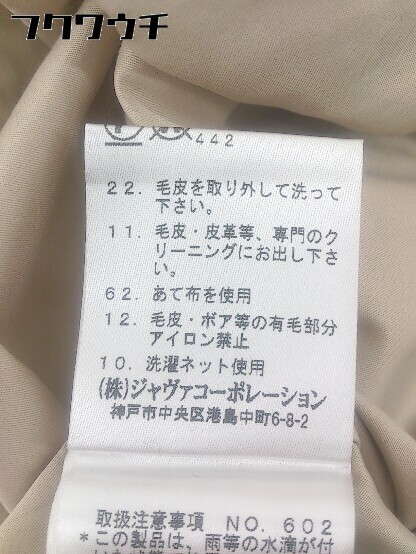 フクワウチ
442
22. 毛皮を取り外して洗って
下さい。
11. 毛皮・皮革等、専門のク
リーニングにお出し下さ
い。
62. あて布を使用
12. 毛皮・ボア等の有毛部分
アイロン禁止
10. 洗濯ネット使用
(株)ジャヴァコーポレーション
神戸市中央区港島中町6-8-2
取扱注意事項 NO. 602
*この製品は、雨等の水滴が付